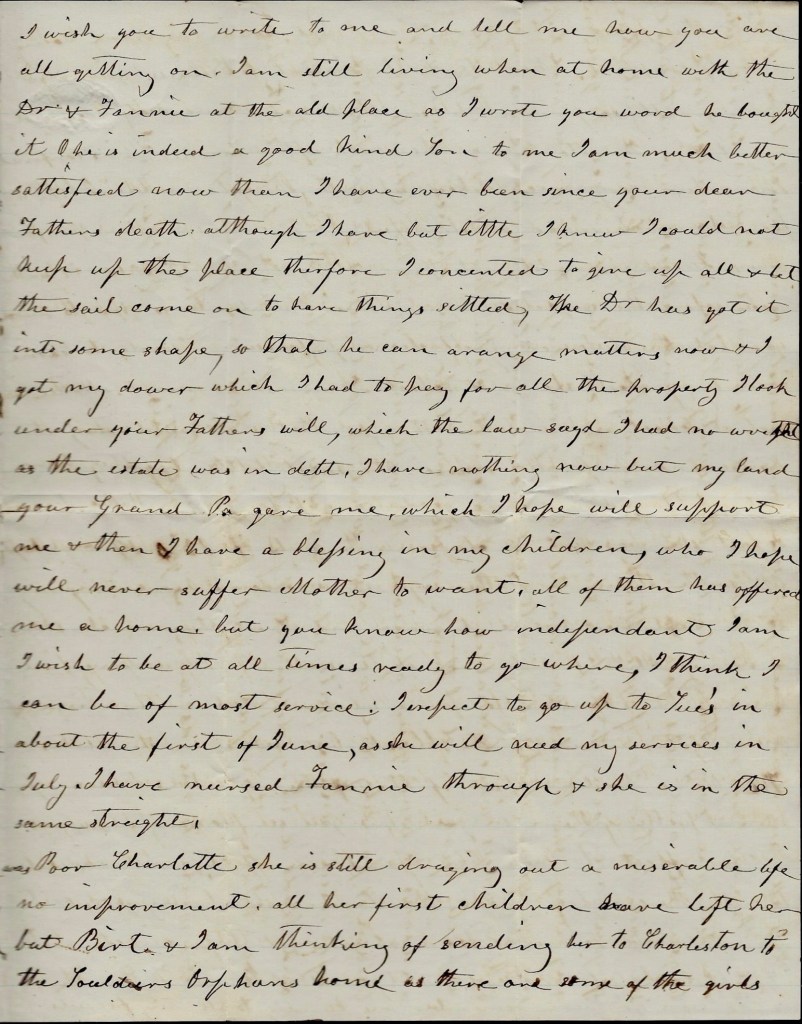 I wish you to write to me and tell me how you are
all getting on. I am still living when at home with the
Dr. & Fannie at the old place as I wrote you word he bought
it O he is indeed a good kind Son to me I am much better
sattisfied now than I have ever been since your dear
Fathers death. although I have but little I knew I could not
keep up the place therfore I concented to give up all & let
the sail come on to have things sittled, The Dr has got it
into some shape, so that he can arange matters now & I
got my dower which I had to pay for all the property I took
under your Fathers will, which the law sayd I had no
as the estate was in debt, I have nothing now but my land
your Grand Pa gave me, which I hope will support
me & then I have a blessing in my children, who I hope
will never suffer Mother to want, all of them has offered
me a home. but you know how independant I am
I wish to be at all times ready to go where, I think I
can be of most service: I expect to go up to Sue's in
about the first of June, as she will need my services in
July. I have nursed Fannie through & she is in the
same streight.
Poor Charlotte she is still draging out a miserable life
no improvement. all her first children have left her
but Birt. & I am thinking of sending her to Charleston to
the Souldiers Orphans home as there are some of the girls